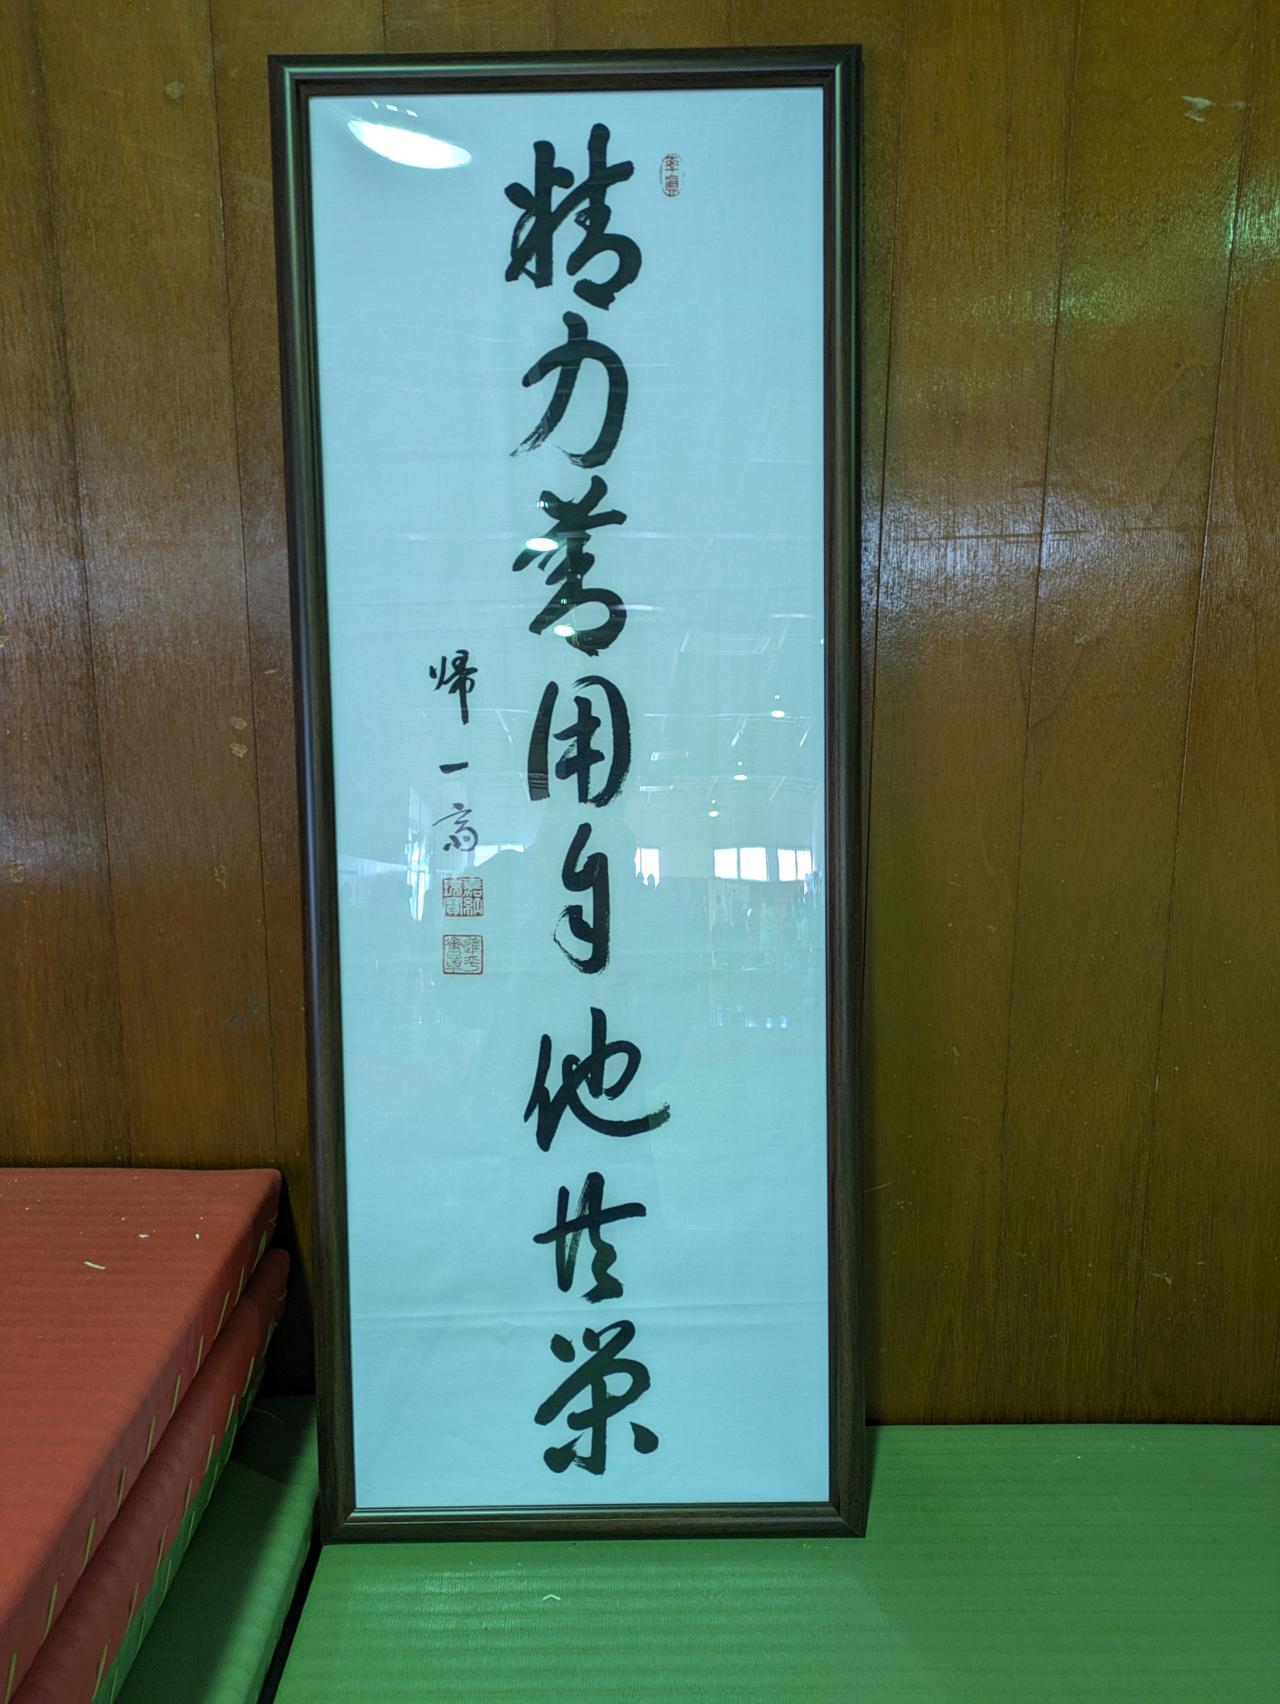 精力善用自他共栄
帰一斎